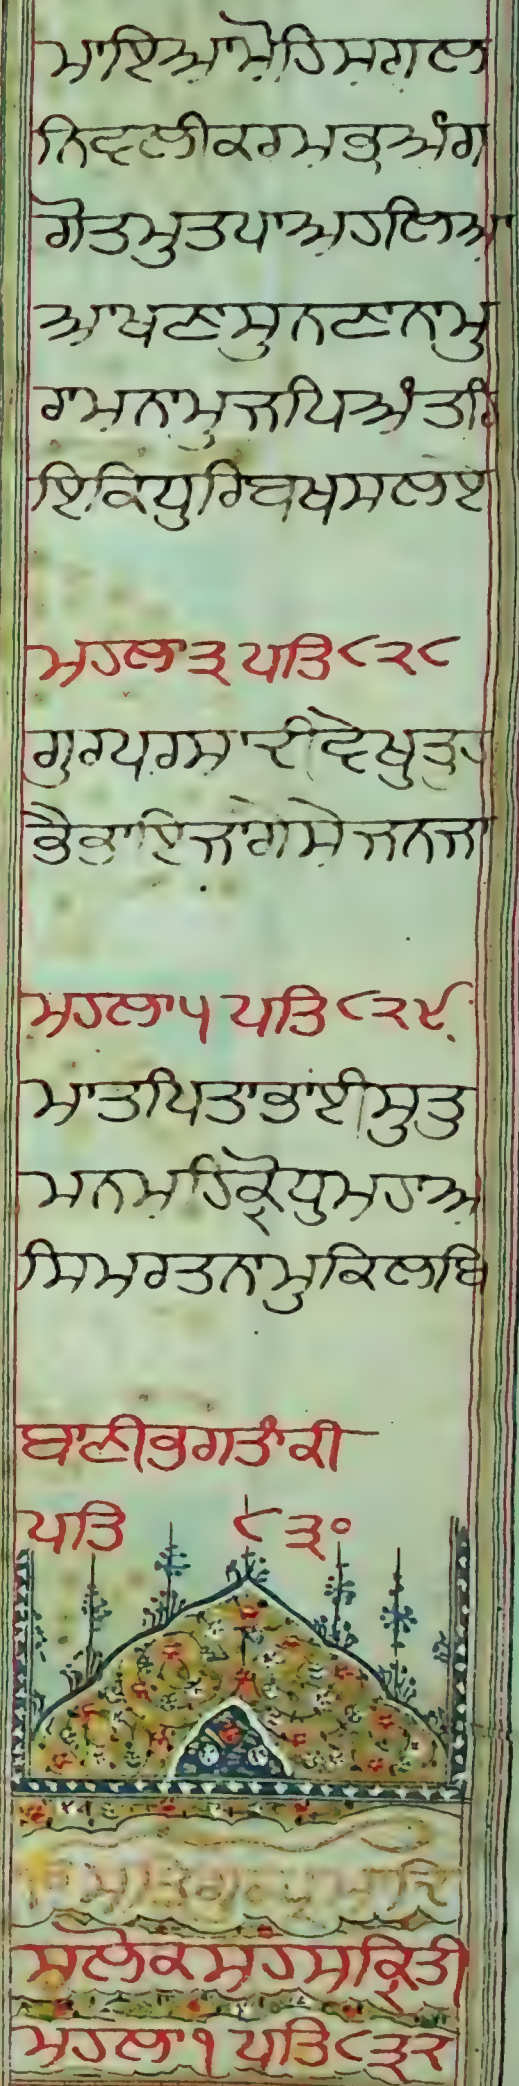 ਮਾਇਆਮੋਹਿਸਗਲ
ਨਿਵਲੀਕਰਮਭੁਅੰਗ
ਗੋਤਮੁਤਪਾਅਹਲਿਆ
ਆਖਣਾਸੁਨਣਾਨਾਮੁ
ਰਾਮਨਾਮੁਜਪਿਅੰਤਰਿ
ਇਕਿਧੁਰਿਬਖਸਲਏ
ਮਹਲਾ੩ਪਤਿ੮੨੮
ਗੁਰਪਰਸਾਦੀਵੇਖੁਤੂਹ
ਭੈਭਾਇਜਾਗੇਸੇਜਨਜਾ
ਮਹਲਾ੫ਪਤਿ੮੨੯
ਮਾਤਾਪਿਤਾਭਾਈਸੁਤੁ
ਮਨਮਹਿਕ੍ਰੋਧੁਮਹਾਅ
ਸਿਮਰਤਨਾਮੁਕਿਲਬਿ
ਬਾਣੀਭਗਤਾਂਕੀ
ਪਤਿ ੮੩੦
ਸਲੋਕਸਹਸਕ੍ਰਿਤੀ
ਮਹਲਾ੧ਪਤਿ੮੩੨